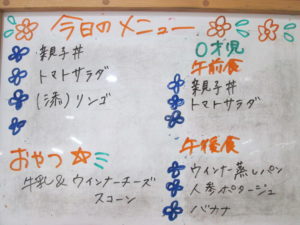 今日のメニュー
親子丼
トマトサラダ
(添)リンゴ
おやつ
牛乳& ウインナーチーズ
スコーン
0才児
午前食
親子丼
トマトサラダ
午後食
ウインナー蒸しパン
人参ポタージュ
バナナ